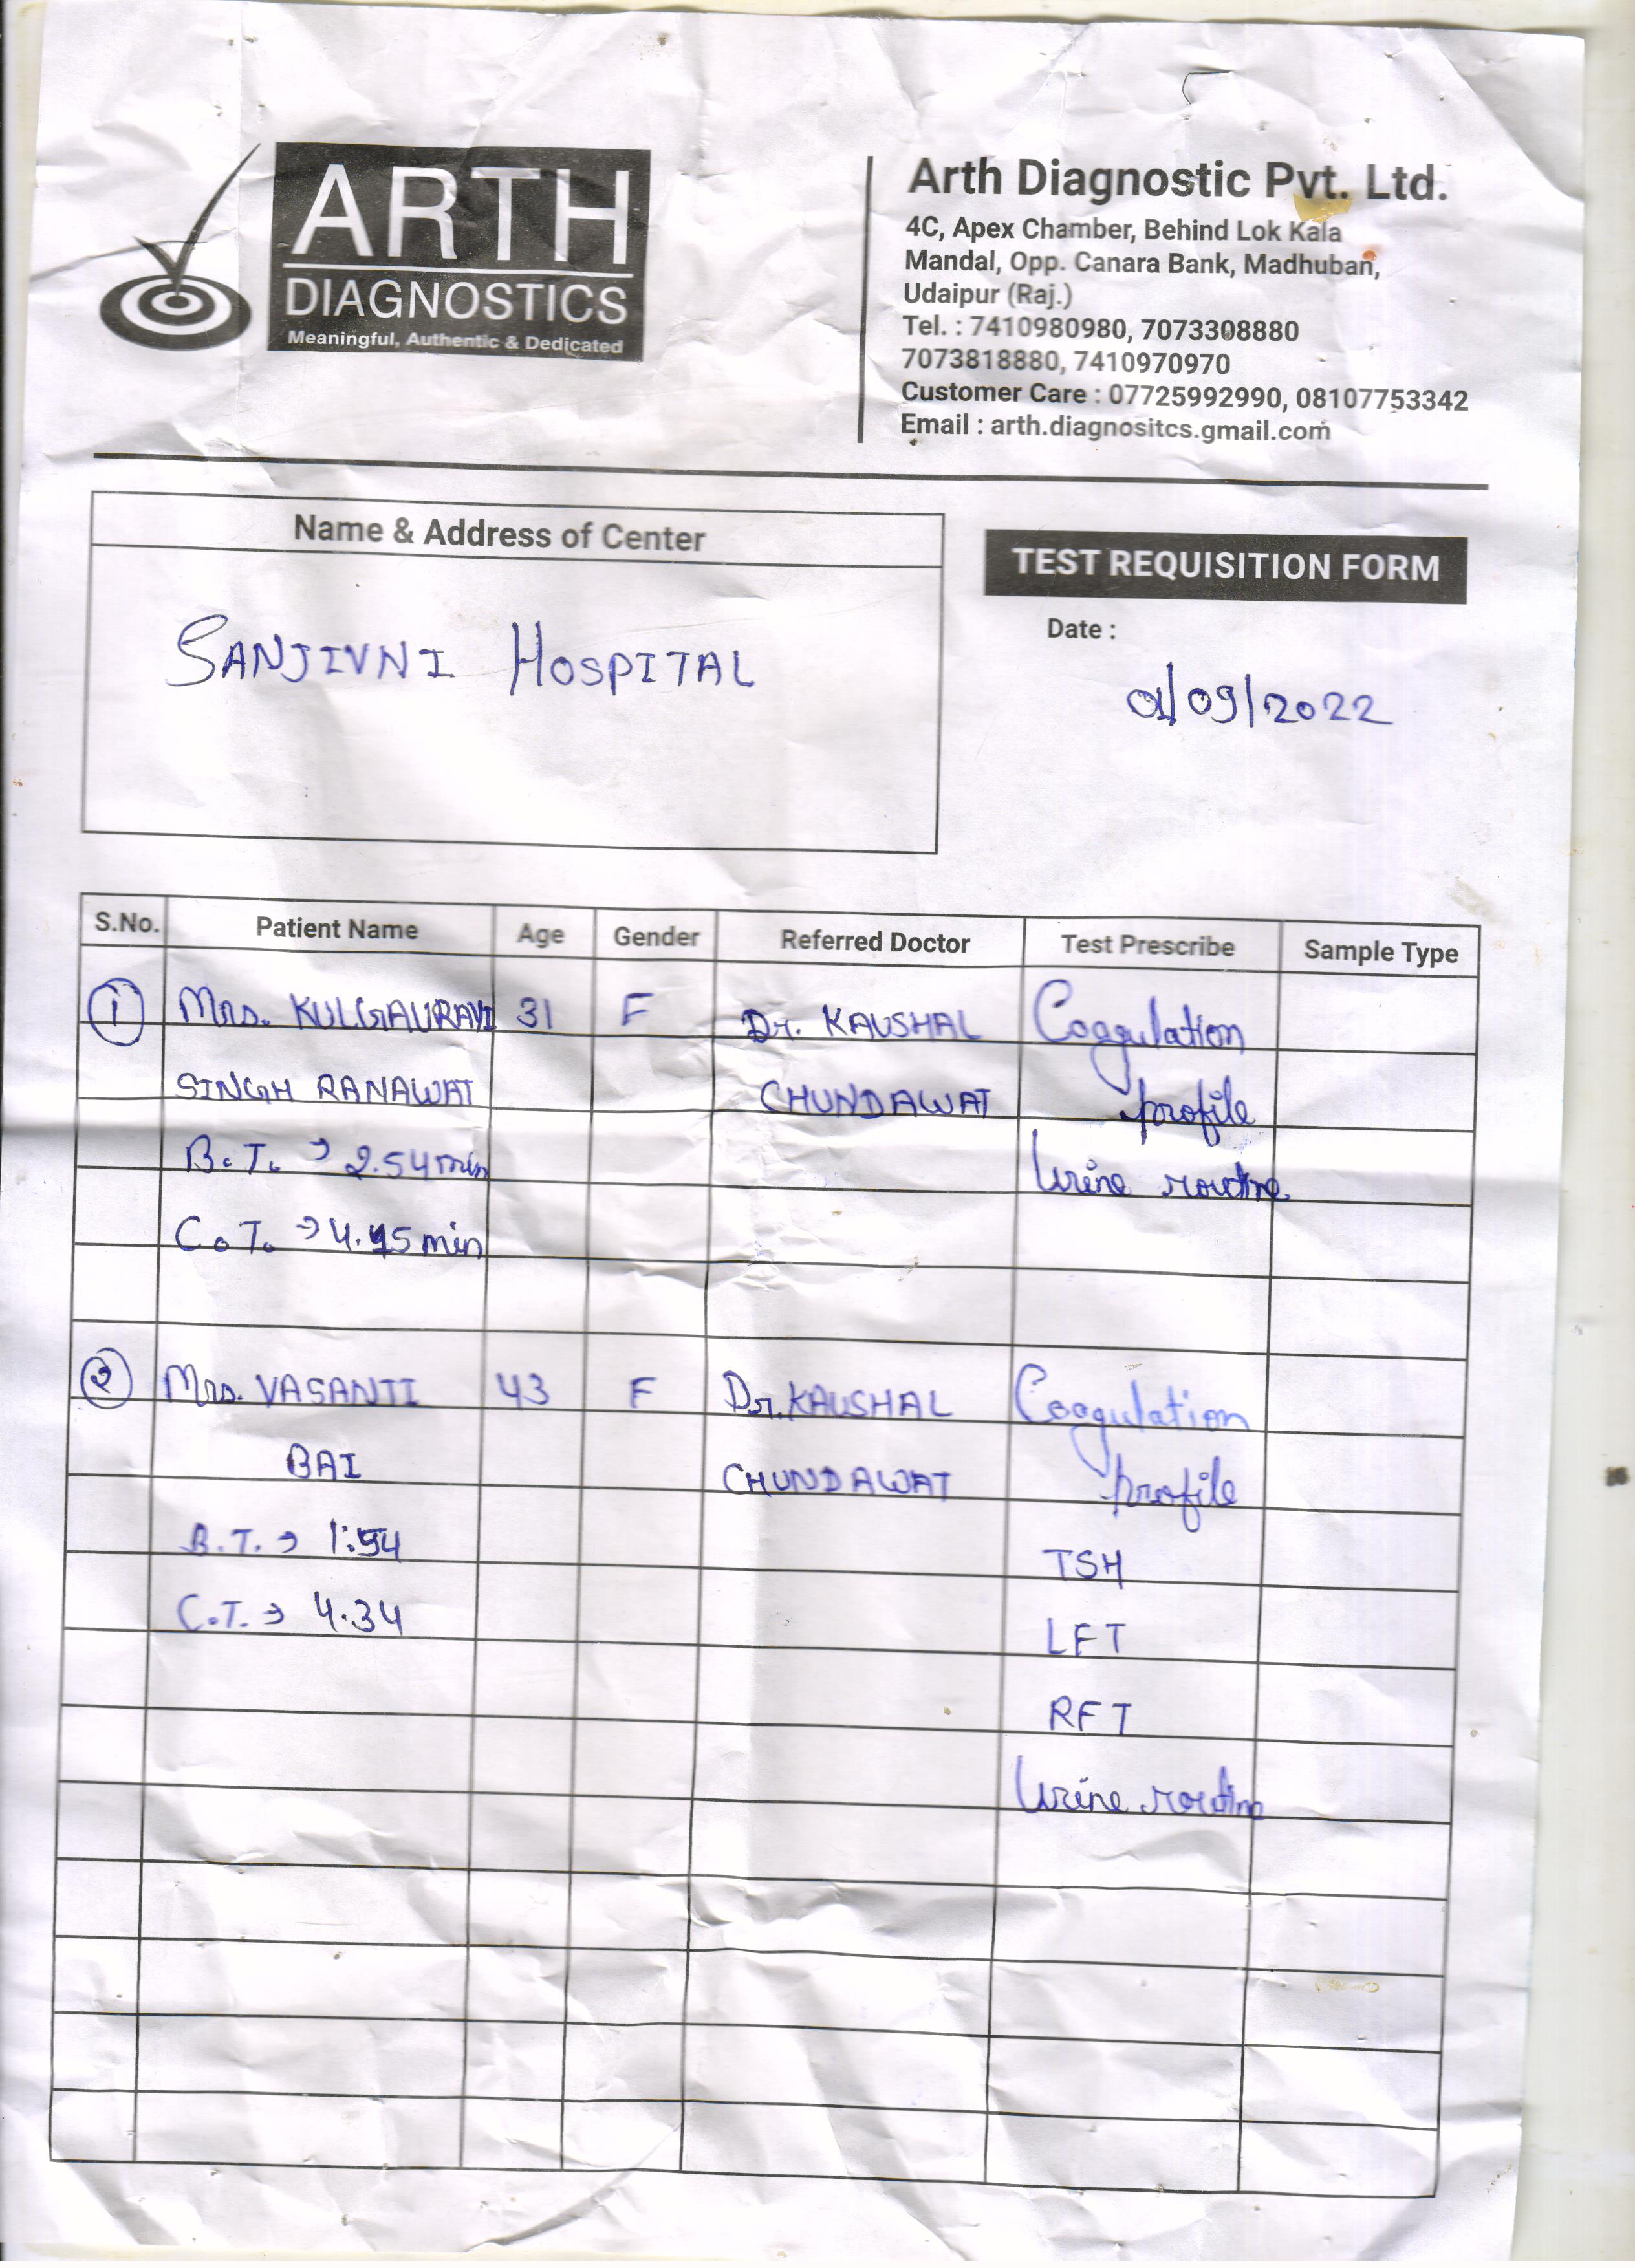 ARTH
DIAGNOSTICS
Meaningful, Authentic & Dedicated
Arth Diagnostic Pvt. Ltd.
4C, Apex Chamber, Behind Lok Kala
Mandal, Opp. Canara Bank, Madhuban,
Udaipur (Raj.)
Tel. : 7410980980, 7073308880
7073818880, 7410970970
Customer Care : 07725992990, 08107753342
Email : arth.diagnositcs.gmail.com
Name & Address of Center
SANJIVNI HOSPITAL
TEST REQUISITION FORM
Date :
01/09/2022
S.No. Patient Name Age Gender Referred Doctor Test Prescribe Sample Type
1 Mrs. KULGAURAVI 31 F Dr. KAUSHAL Coagulation
SINGH RANAWAT CHUNDAWAT profile
B.T. → 2.54 min Urine routine
C.T. → 4.45 min
2 Mrs. VASANTI 43 F Dr. KAUSHAL Coagulation
BAI CHUNDAWAT profile
B.T. → 1:54 TSH
C.T. → 4.34 LFT
RFT
Urine routine